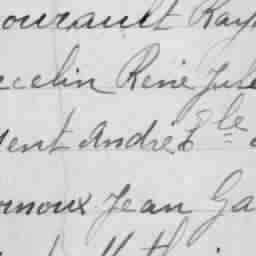 ourault Ray
ecelin René Jule
ent André É le
rnoux Jean Ga